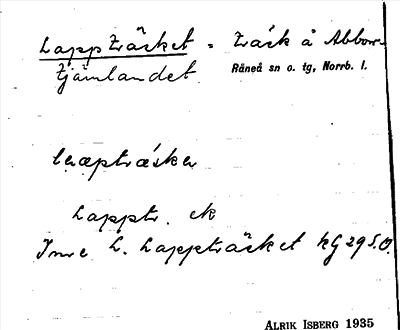 Lappträsket = träsk å Abbor-
tjämlandet. Råneå sn o. tg, Norrb. l.
Lapptr. ek
Inre L. Lappträsket kg 29 S.O.
ALRIK ISBERG 1935